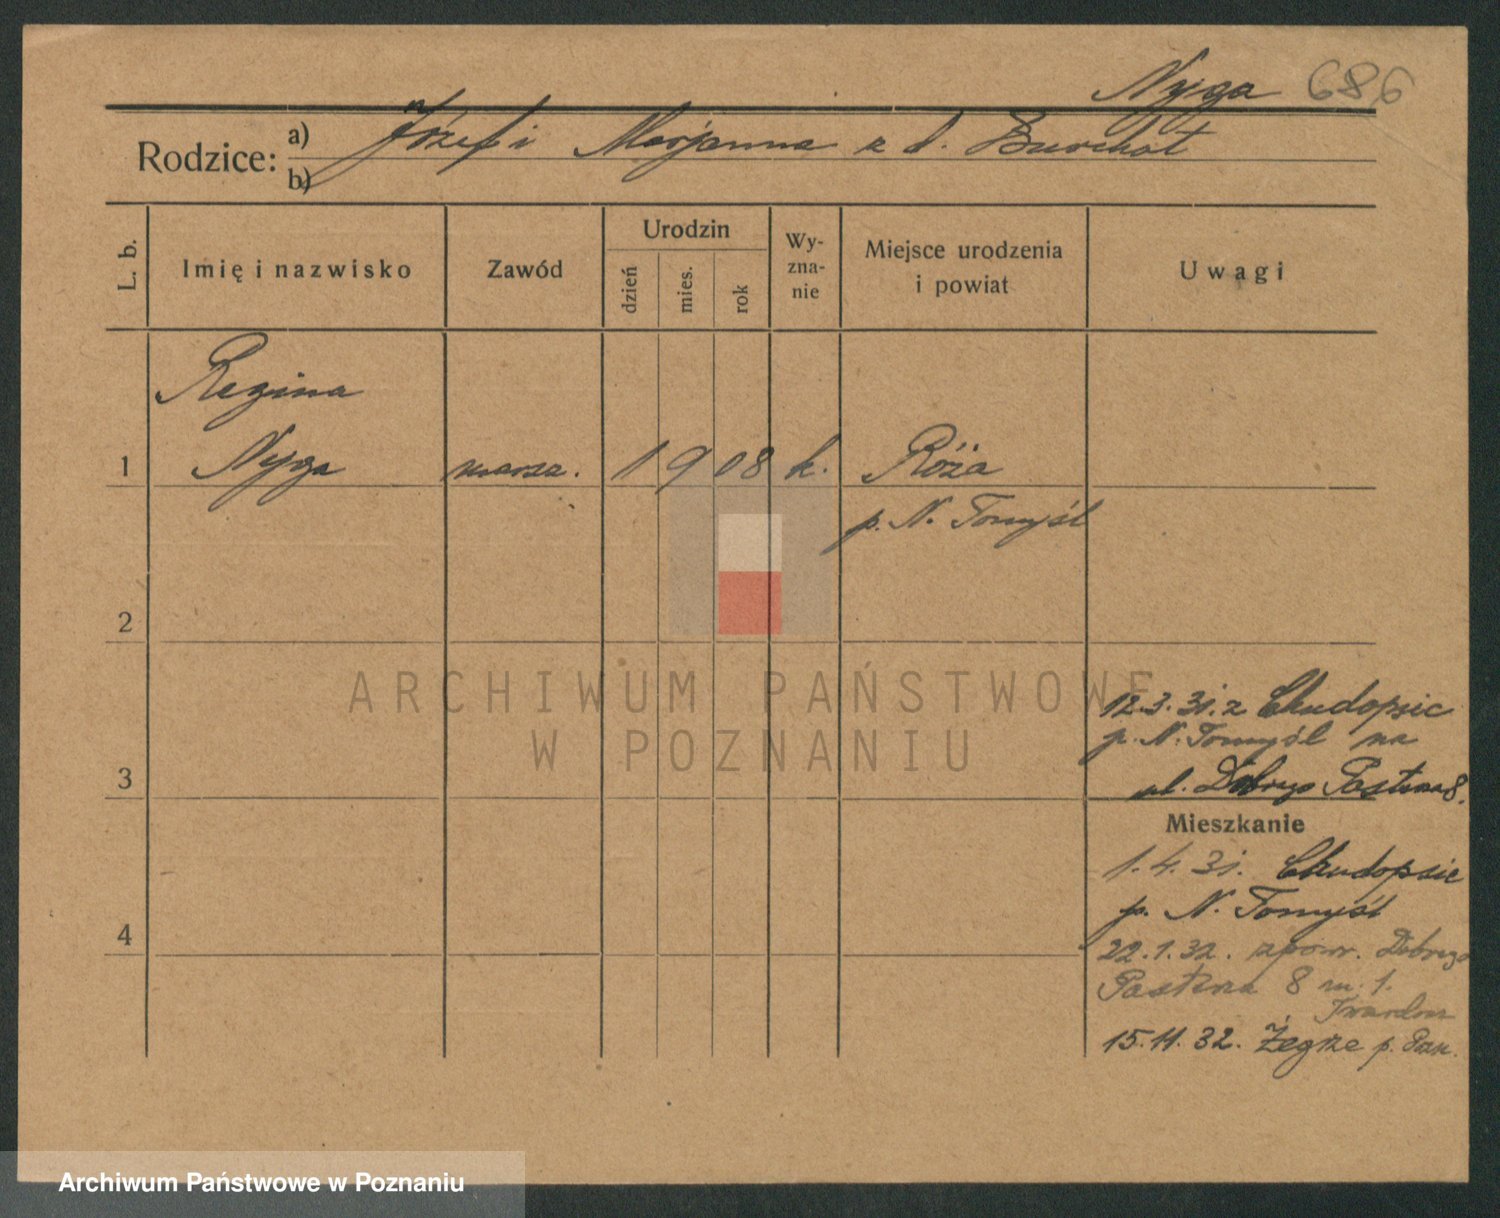 Nyga 686
Rodzice: a) Józef i Marjanna z d. Burchat
b)
L. b. Imię i nazwisko Zawód Urodzin dzień mies. rok Wy-zna-nie Miejsce urodzenia i powiat Uwagi
Regina
1 Nyga 1 9 08 k. Róża
p. N. Tomyśl
2
ARCHIWUM PAŃSTWOWE
W POZNANIU
12.3.31. z Chudopsic
p. N. Tomyśl na
3 ul. Dobrego Pasterza 8.
Mieszkanie
1.4.31. Chudopsic
p. N. Tomyśl
4
22.1.32. zpowr. Dobrego
Pasterza 8 m. 1.
15.11.32. Żegrze p. Pozn.
Archiwum Państwowe w Poznaniu